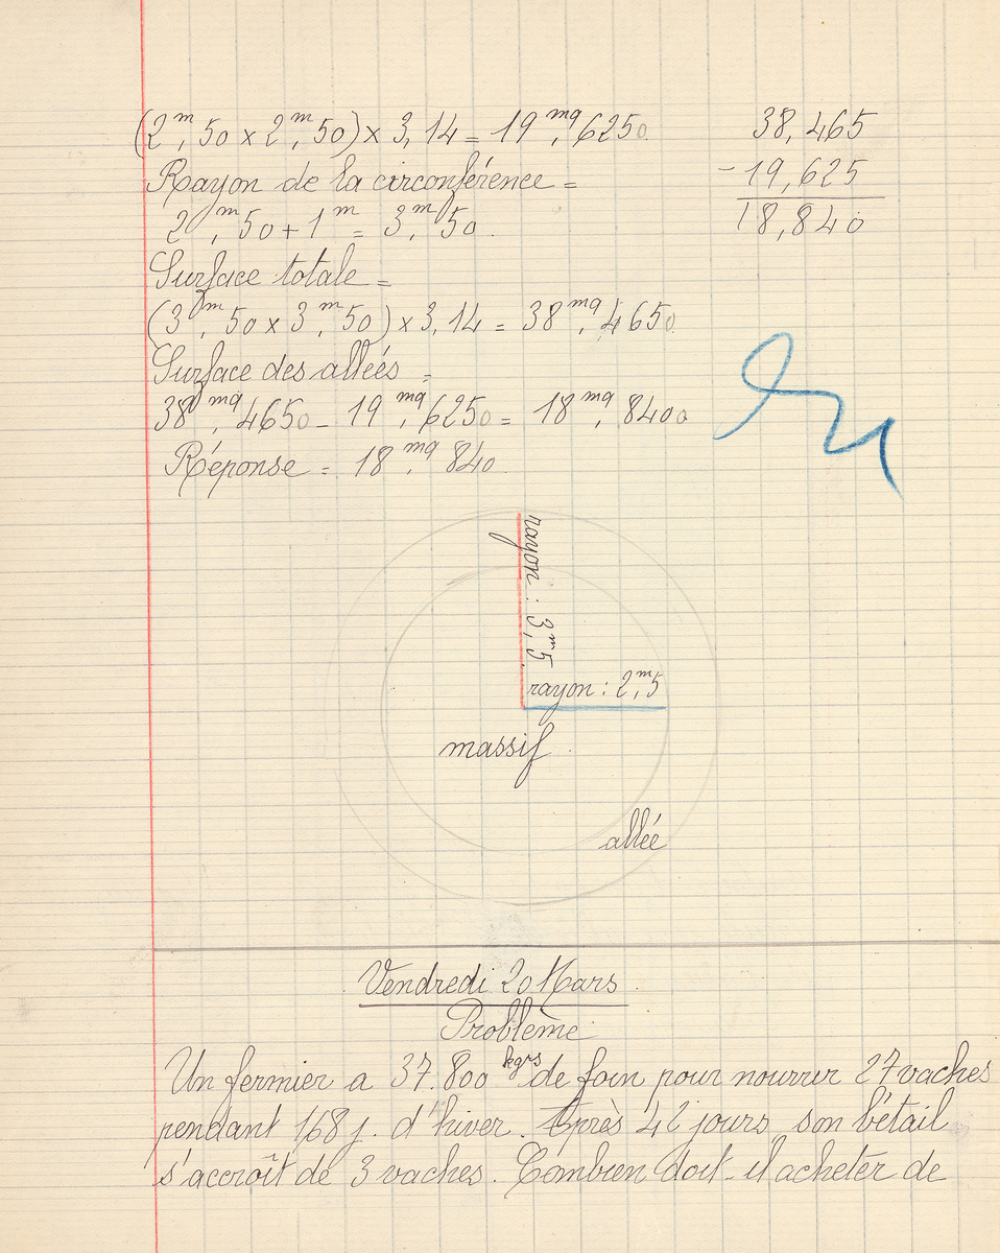 (2m,50 x 2m,50) x 3,14 = 19mq,6250
38,465
Rayon de la circonférence =
-19,625
2m,50 + 1m = 3m,50.
18,840
Surface totale =
(3m,50 x 3m,50) x 3,14 = 38mq,4650
Surface des allées =
38mq,4650 - 19mq,6250 = 18mq,8400
Réponse = 18mq,840
rayon : 3,m5.
rayon : 2,m5
massif
allée
Vendredi 20 Mars
Problème
Un fermier a 37.800 kgrs de foin pour nourrir 27 vaches
pendant 168 j. d'hiver. Après 42 jours son bétail
s'accroît de 3 vaches. Combien doit-il acheter de